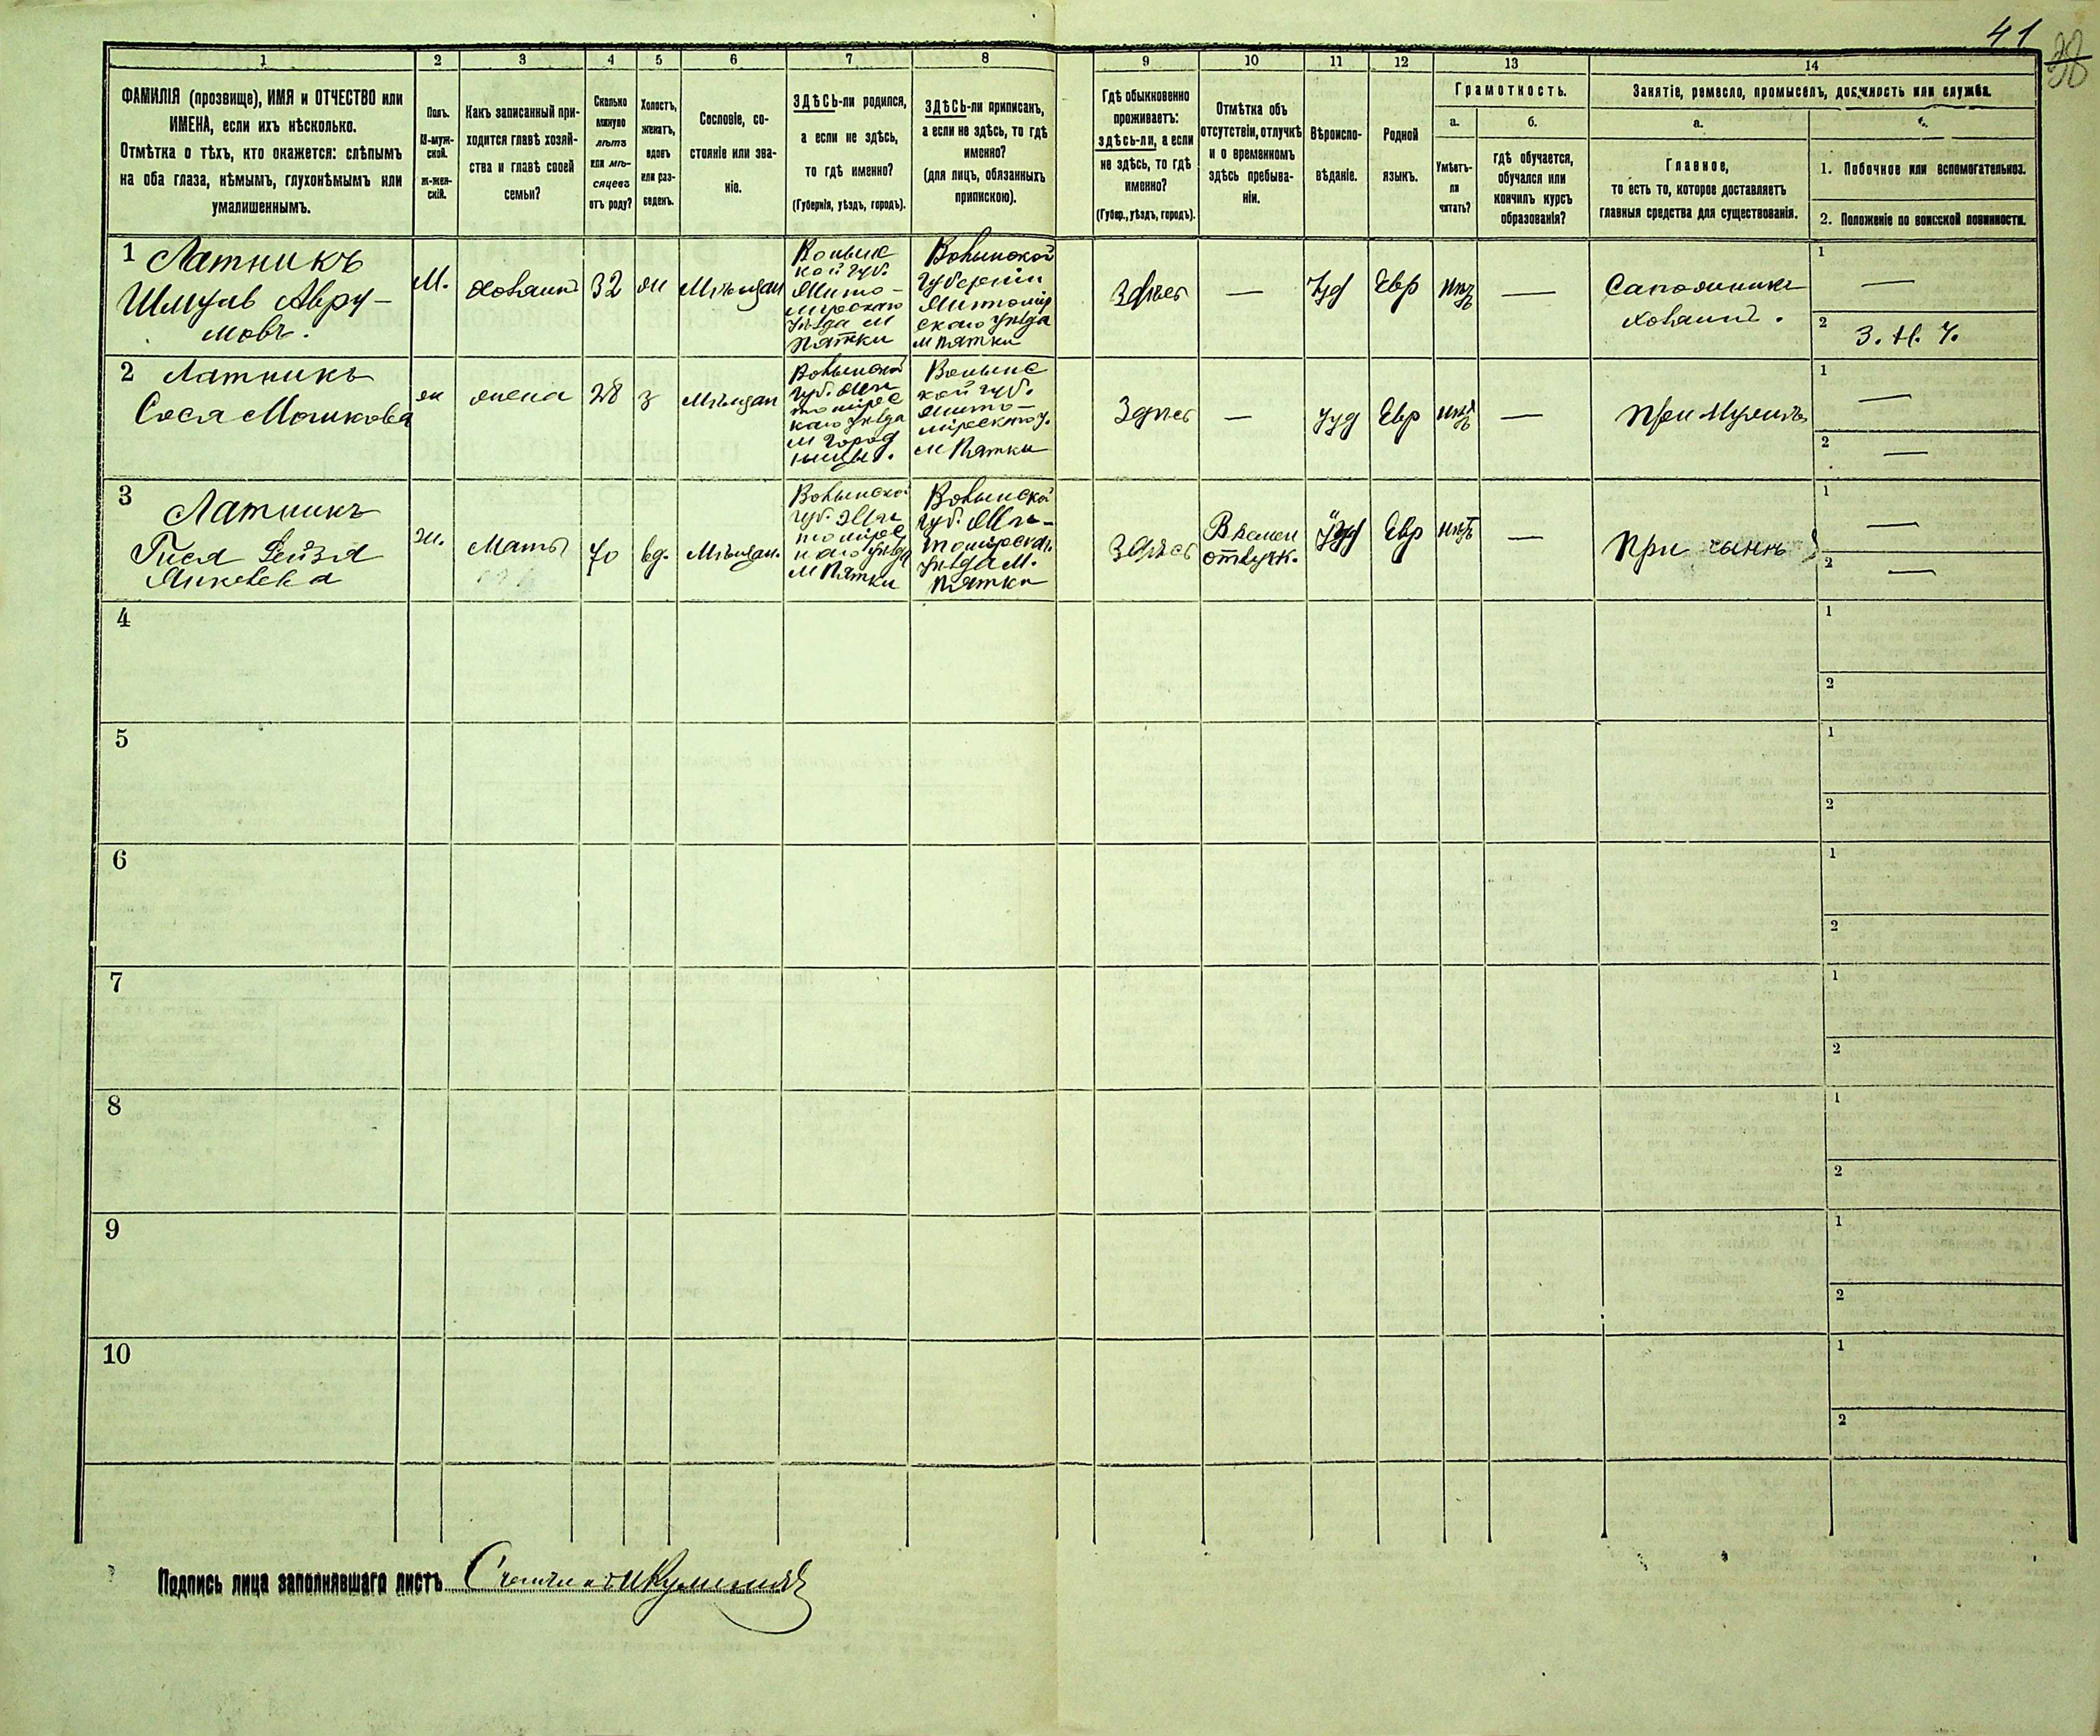 41
38
1
2
3
4
5
6
7
8
9
10
11
12
13
14
ФАМИЛІЯ (прозвище), ИМЯ и ОТЧЕСТВО или
ИМЕНА, если ихъ нѣсколько.
Отмѣтка о тѣхъ, кто окажется: слѣпымъ
на оба глаза, нѣмымъ, глухонѣмымъ или
умалишеннымъ.
Полъ.
М-муж-
ской.
ж-жен-
скій.
Какъ записанный при-
ходится главѣ хозяй-
ства и главѣ своей
семьи?
Сколько
минуло
лѣтъ
или мѣ-
сяцевъ
отъ роду?
Холостъ,
женатъ,
вдовъ
или раз-
веденъ.
Сословіе, со-
стояніе или зва-
ніе.
ЗДѢСЬ-ли родился,
а если не здѣсь,
то гдѣ именно?
(Губернія, уѣздъ, городъ).
ЗДѢСЬ-ли приписанъ,
а если не здѣсь, то гдѣ
именно?
(для лицъ, обязанныхъ
припискою).
Гдѣ обыкновенно
проживаетъ:
здѣсь-ли, а если
не здѣсь, то гдѣ
именно?
(Губер., уѣздъ, городъ).
Отмѣтка объ
отсутствіи, отлучкѣ
и о временномъ
здѣсь пребыва-
ніи.
Вѣроиспо-
вѣданіе.
Родной
языкъ.
Грамотность.
а.
б.
Умѣетъ-
ли
читать?
гдѣ обучается,
обучался или
кончилъ курсъ
образованія?
Занятіе, ремесло, промыселъ, должность или служба.
а.
Главное,
то есть то, которое доставляетъ
главныя средства для существованія.
1. Побочное или вспомогательное.
2. Положеніе по воинской повинности.
1 Латникъ
Шмуль Авру-
мовъ.
М.
хозяинъ
32
ж
Мѣщан
Волынс
кой губ.
Жито-
мірскаго
уѣзда м
Пятки
Волынской
губерніи
Житомір
скаго уѣзда
м Пятки
Здѣсь
—
Іуд
Евр
нѣтъ
—
Сапожникъ
хозяинъ.
1
—
2
З. Н. Ч.
2 Латникъ
Сося Мошкова
ж
жена
28
з
Мѣщан
Волынской
губ. Жи
томірс
каго уѣзда
м Город
ницы.
Волынс
кой губ.
Жито-
мірскаго у.
м Пятки
Здѣсь
—
Іуд
Евр
нѣтъ
—
При мужѣ
1
—
2
—
3 Латникъ
Гися Рейзя
Янкелева
ж.
Мать
70
вд.
Мѣщан.
Волынской
губ. Жи
томірс
каго уѣзда
м Пятки
Волынской
губ. Жи-
томірскаг.
уѣзда м.
Пятки
Здѣсь
Времен
отлучк.
Іуд
Евр
нѣтъ
—
При сынѣ
1
—
2
—
4
1
2
5
1
2
6
1
2
7
1
2
8
1
2
9
1
2
10
1
2
Подпись лица заполнявшаго листъ Счетчикъ